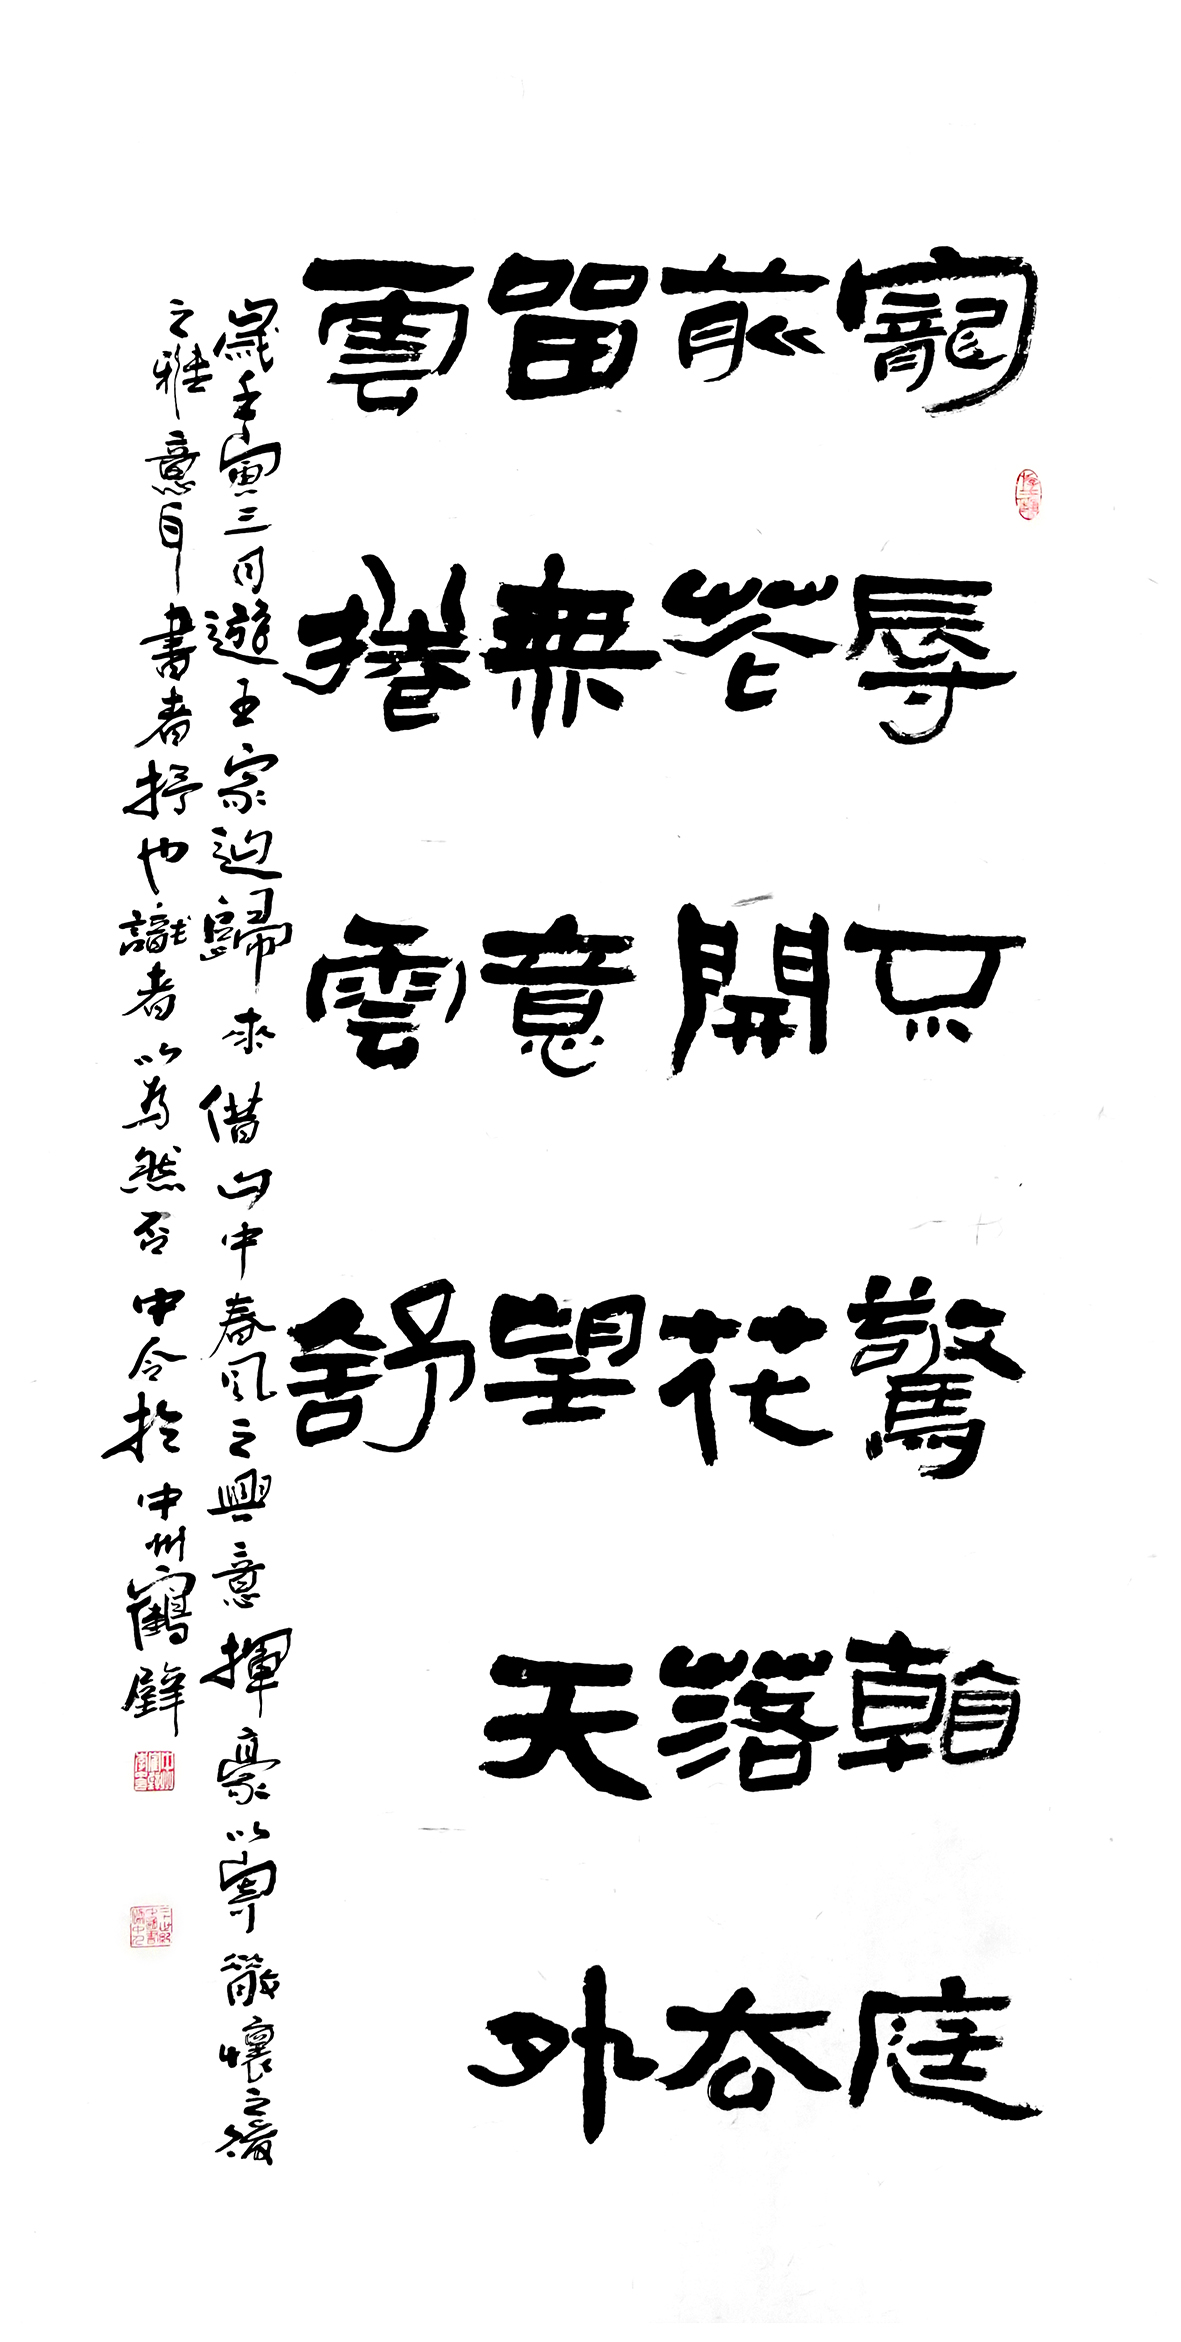 寵辱不驚看庭
前花開花落去
留無意望天外
雲捲雲舒
歲壬寅三月遊王家辿歸來借山中春風之興意揮豪以寄散懷之
之雅意耳書者抒也識者以為然否中令於中州鶴壁